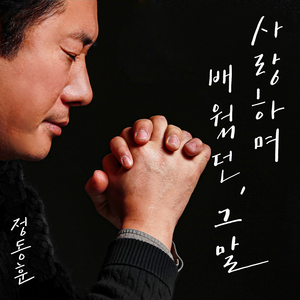 사랑하며
배웠던, 그 말
정동훈